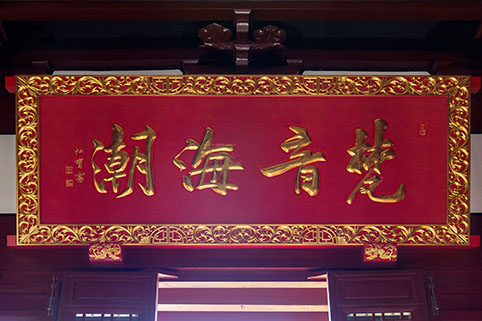 梵音海潮